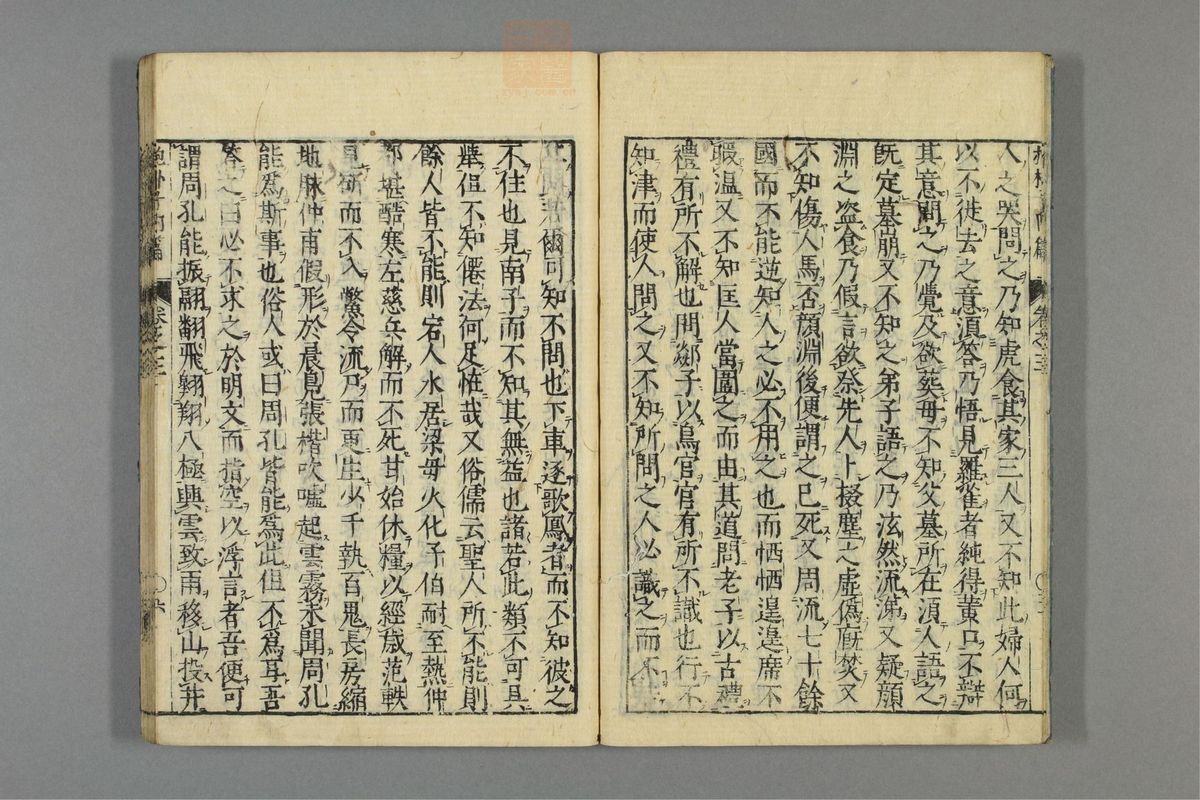 人之哭問之乃知虎食其家三人又不知此婦人何
以不徙去之意須答乃悟見羅雀者純得黃口不辯
其意問之乃覺及欲葬母不知父墓所在須人語之
既定墓崩又不知之弟子語之乃泫然流涕又疑顏
淵之盜食乃假言欲祭先人卜掇塵之虛偽廐焚又
不知傷人馬否顏淵後便謂之已死又周流七十餘
國而不能逆知人之必不用之也而栖栖遑遑席不
暇溫又不知匡人當圍之而由其道問老子以古禮
禮有所不解也問郯子以鳥官官有所不識也行不
知津而使人問之又不知所問之人必譏之而不
爾可知不問也下車逐歌鳳者而不知彼之
不住也見南子而不知其無益也諸若此類不可具
舉但不知僊法何足恠哉又俗儒云聖人所不能則
餘人皆不能則宕人水居梁母火化子伯耐至熱仲
都堪酷寒左慈兵解而不死甘始休糧以經歲范軼
見斫而不入鱉令流尸而更生少千執百鬼長房縮
地脉仲甫假形於晨鳧張楷吹噓起雲霧未聞周孔
能爲斯事也俗人或曰周孔皆能爲此但不爲耳吾
答之曰必不求之於明文而指空以浮言者吾便可
謂周孔能振翮翻飛翱翔八極興雲致雨移山投井